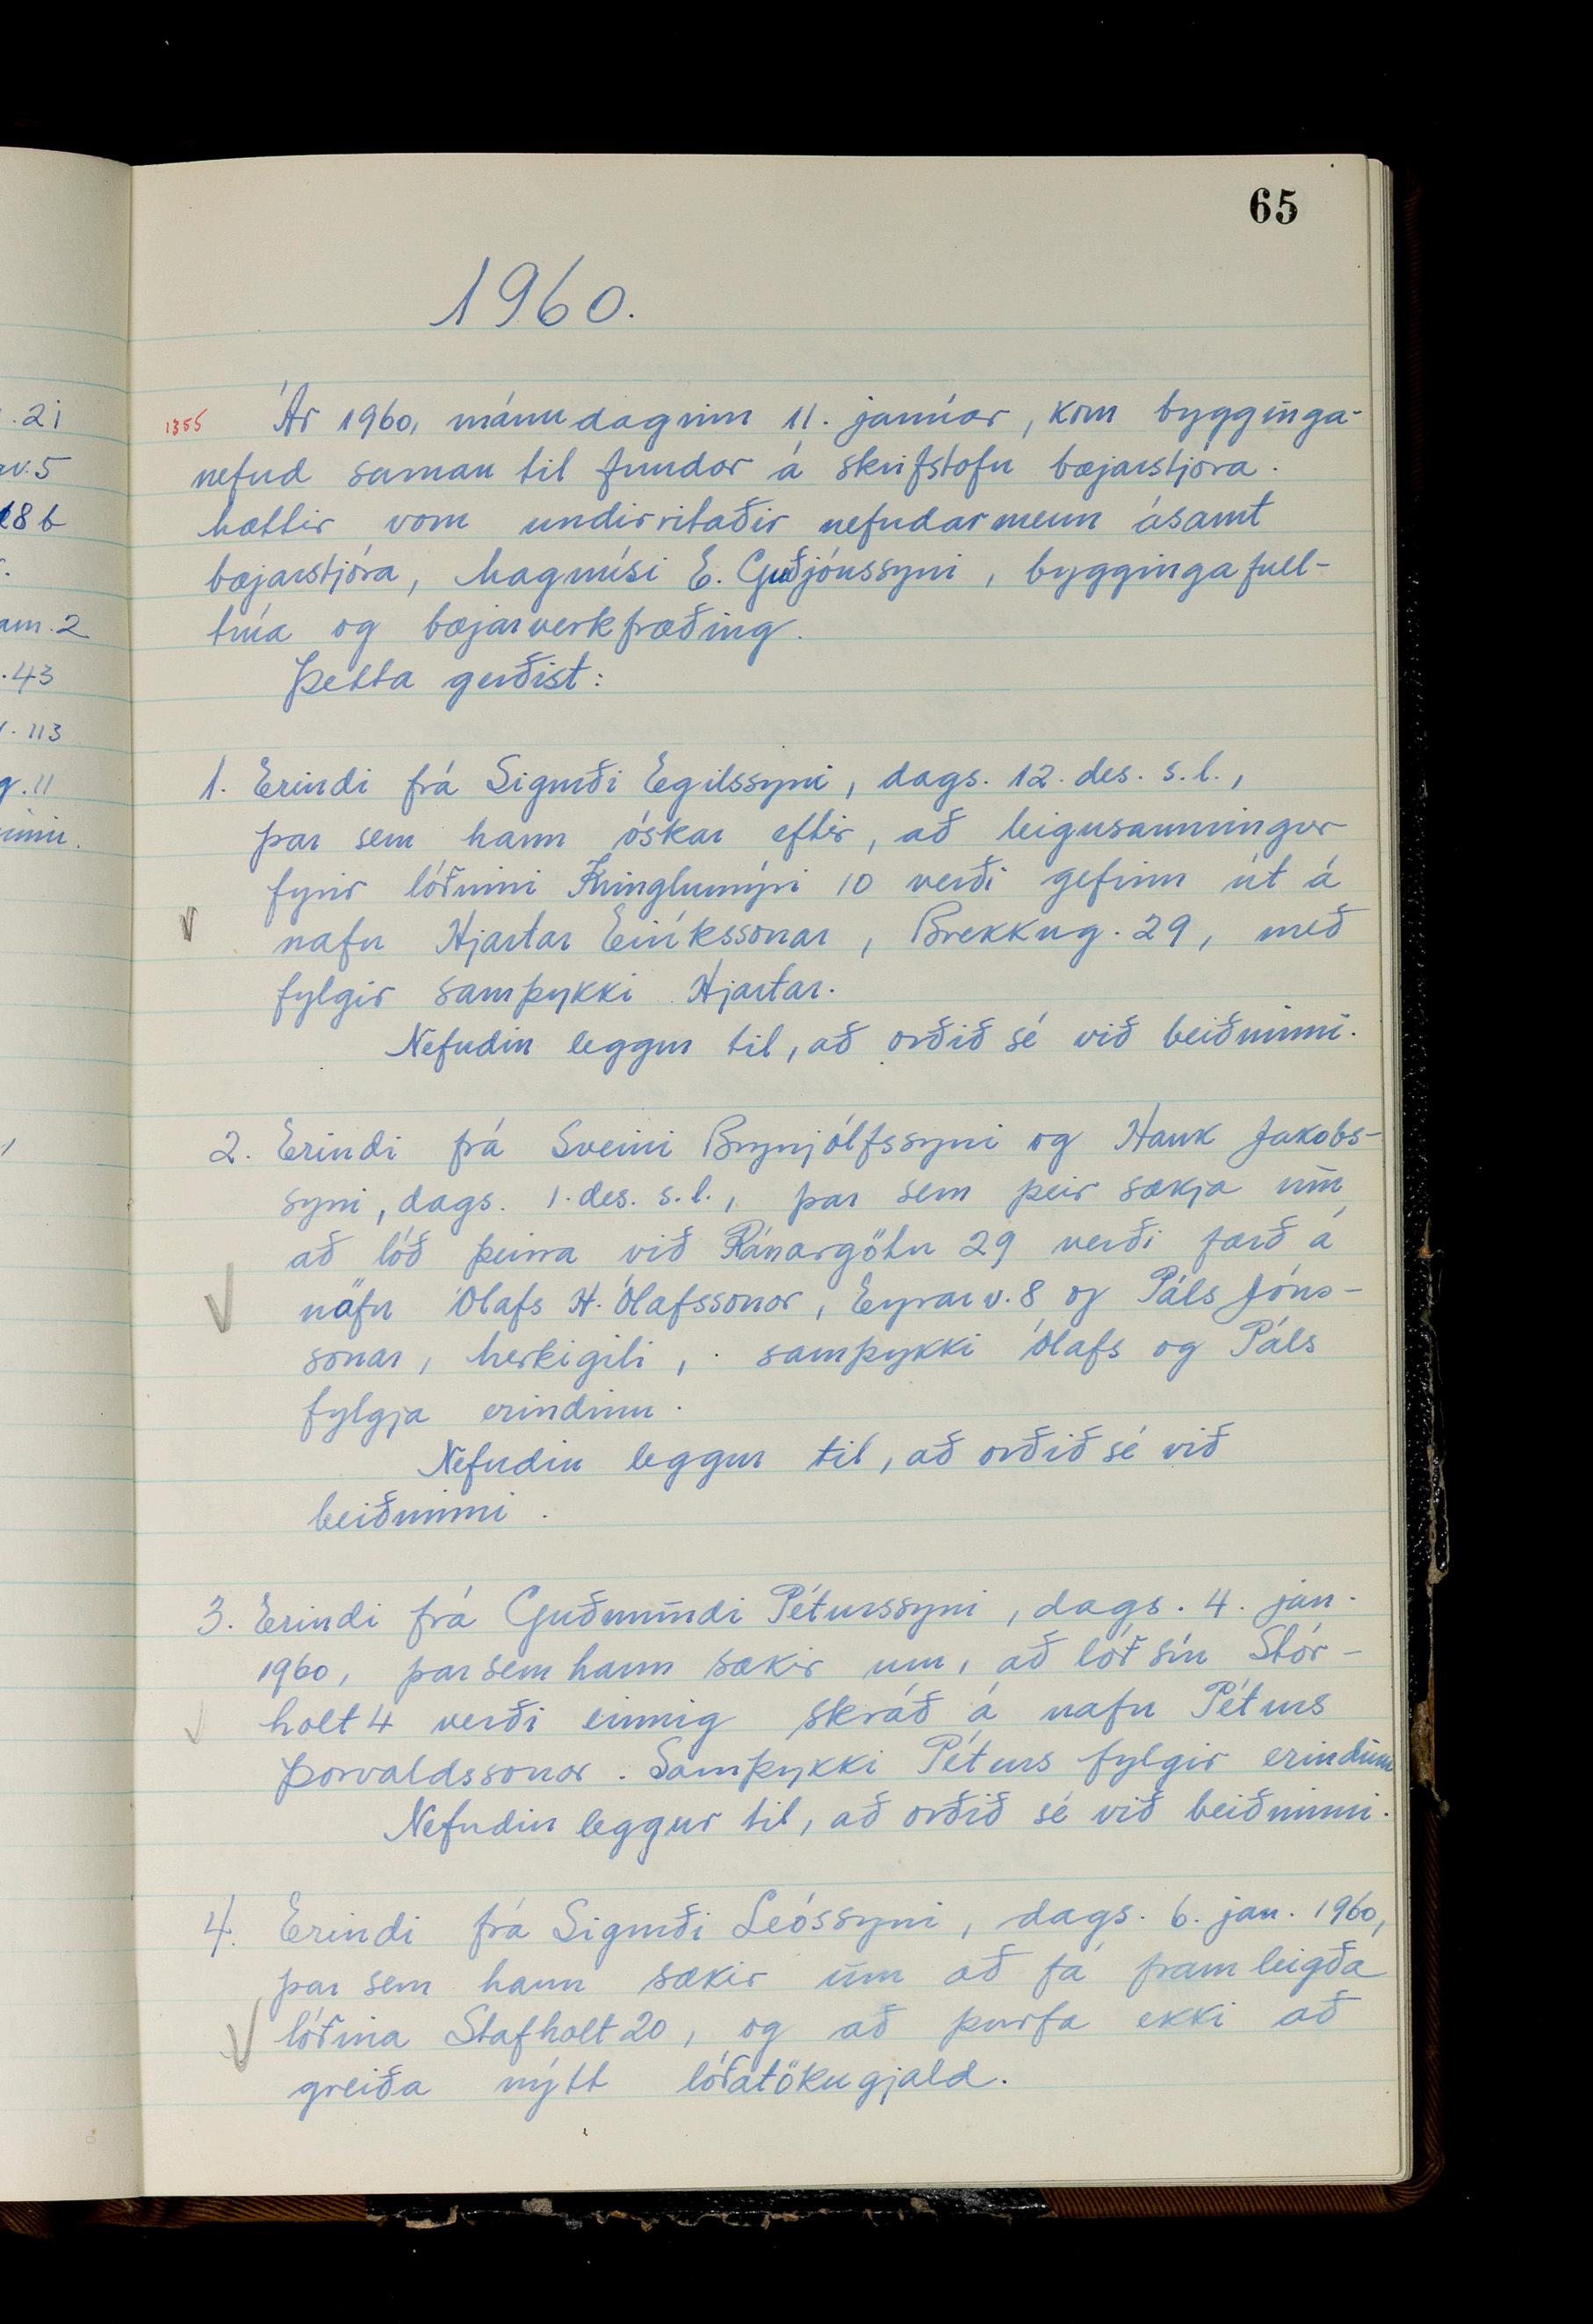 65
1960.
1355 Ár 1960, mánudaginn 11. janúar, kom bygginga-
nefnd saman til fundar á skrifstofu bæjarstjóra.
Mættir voru undirritaðir nefndarmenn ásamt
bæjarstjóra, Magnúsi E. Guðjónssyni, byggingafull-
trúa og bæjarverkfræðing.
Þetta gerðist:
1. Erindi frá Sigurði Egilssyni, dags. 12. des. s.l.,
þar sem hann óskar eftir, að leigusamningur
fyrir lóðinni Kringlumýri 10 verði gefinn út á
nafn Hjartar Eiríkssonar, Brekkug. 29, með
fylgir samþykki Hjartar.
Nefndin leggur til, að orðið sé við beiðninni.
2. Erindi frá Sveini Brynjólfssyni og Hauk Jakobs-
syni, dags. 1. des. s.l., þar sem þeir sækja um
að lóð þeirra við Ránargötu 29 verði færð á
nöfn Ólafs H. Ólafssonar, Eyrarv. 8 og Páls Jóns-
sonar, Merkigili, samþykki Ólafs og Páls
fylgja erindinu.
Nefndin leggur til, að orðið sé við
beiðninni.
3. Erindi frá Guðmundi Péturssyni, dags. 4. jan.
1960, þar sem hann sækir um, að lóð sín Stór-
holt 4 verði einnig skráð á nafn Péturs
Þorvaldssonar. Samþykki Péturs fylgir erindinu
Nefndin leggur til, að orðið sé við beiðninni.
4. Erindi frá Sigurði Leóssyni, dags. 6. jan. 1960,
þar sem hann sækir um að fá framleigða
lóðina Stafholt 20, og að þurfa ekki að
greiða nýtt lóðatökugjald.